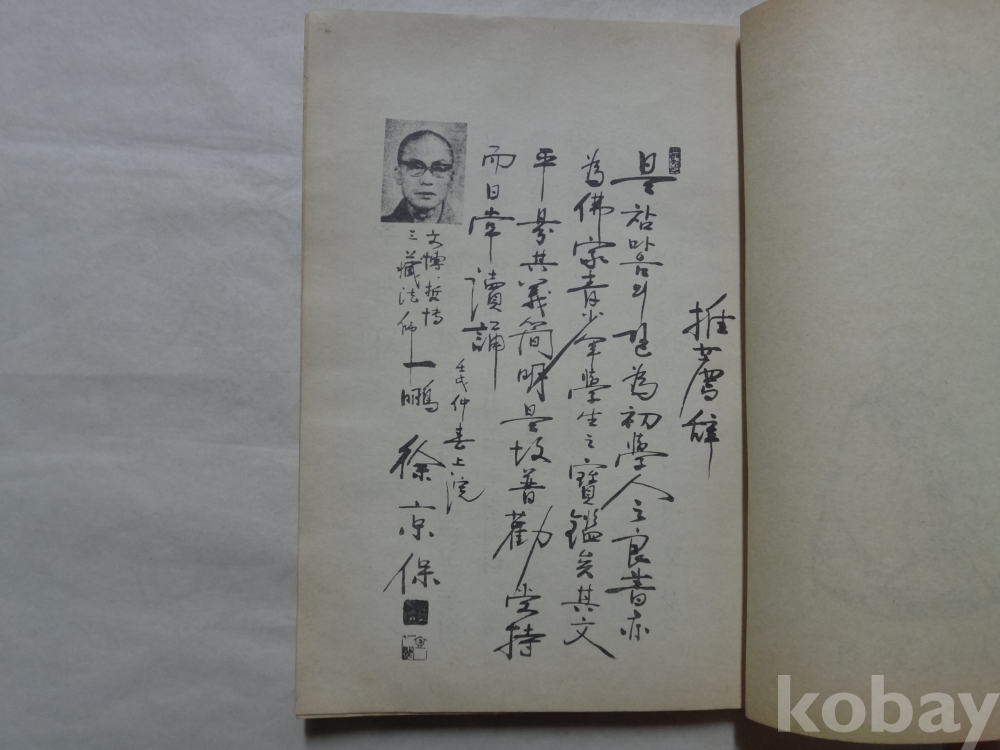 推薦辞
是참마음의길為初學人之良書亦
為佛家青少年學生之寶鑑矣其文
平易其義簡明是故普勸受持
而日常讀誦
壬戌仲春上浣
文博·哲博
三藏法師 一鵬 徐京保
kobay